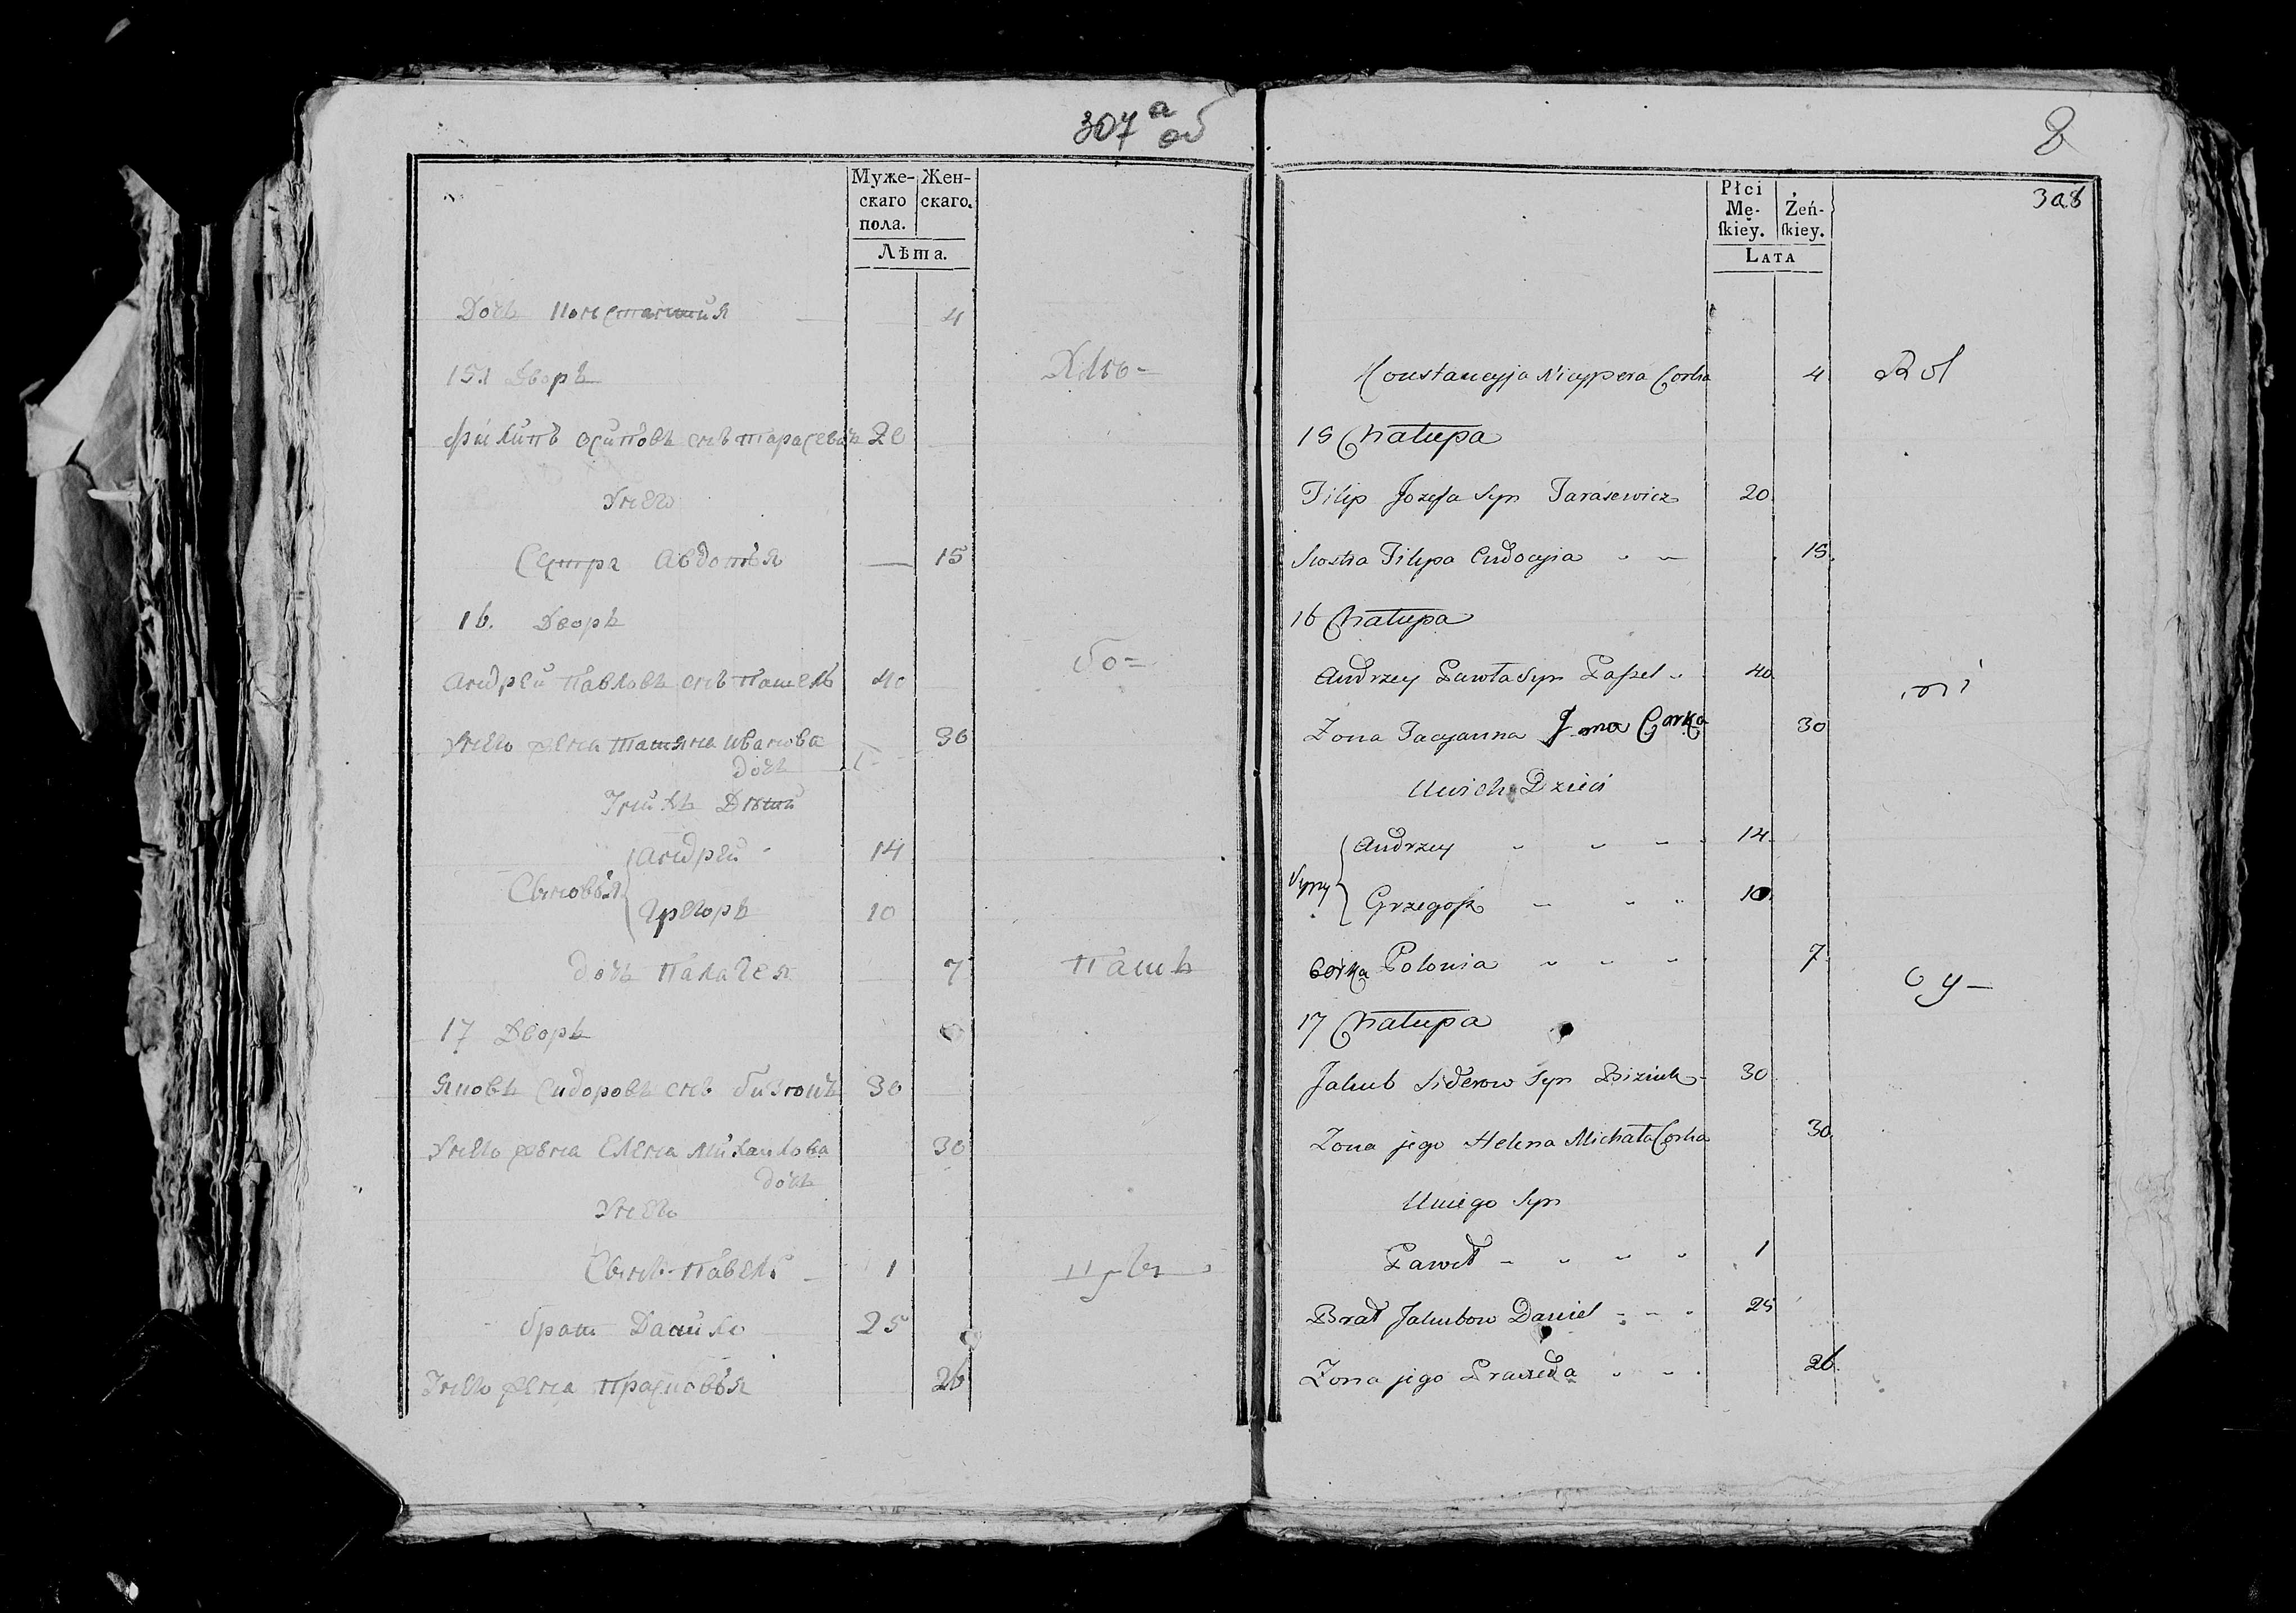 307 а об
Муже-
скаго
пола.
Жен-
скаго.
Лѣта.
Дочь Констанция 4
15. Дворъ
Филипъ Осиповъ снъ Тарасевичъ 20
У него
Сестра Авдотья — 15
16. Дворъ
Андрей Павловъ снъ Пашель 40
У него жена Татьяна Иванова 30
дочь
У нихъ Дѣти
Сыновья
Андрей 14
Грегоръ 10
дочь Палагея 7
17 Дворъ
Яковъ Сидоровъ снъ Бизюкъ 30
У него жена Елена Михайлова 30
дочь
У него
Сынъ Павелъ 1
брат Данило 25
У него жена Прасковья 26
Хлѣ-
бо-
Пашъ
8
308
Płci
Mę-
ſkiey.
Żeń-
ſkiey.
LATA
Konstancyja Nicypera Corka 4
15 Chałupa
Filip Jozefa Syn Tarasewicz 20
Siostra Filipa Eudocyia 15
16 Chałupa
Andrzey Pawła Syn Paſzel 40
Zona Tacyanna Jana Corka 30
U nich Dzieci
Syny
Andrzey 14
Grzegoſz 10
Corka Polonia 7
17 Chałupa
Jakub Siderow Syn Biziuk 30
Zona jego Helena Michała Corka 30
U niego Syn
Paweł 1
Brat Jakubow Daniel 25
Zona jego Praxeda 26
Rol
ni
cy-